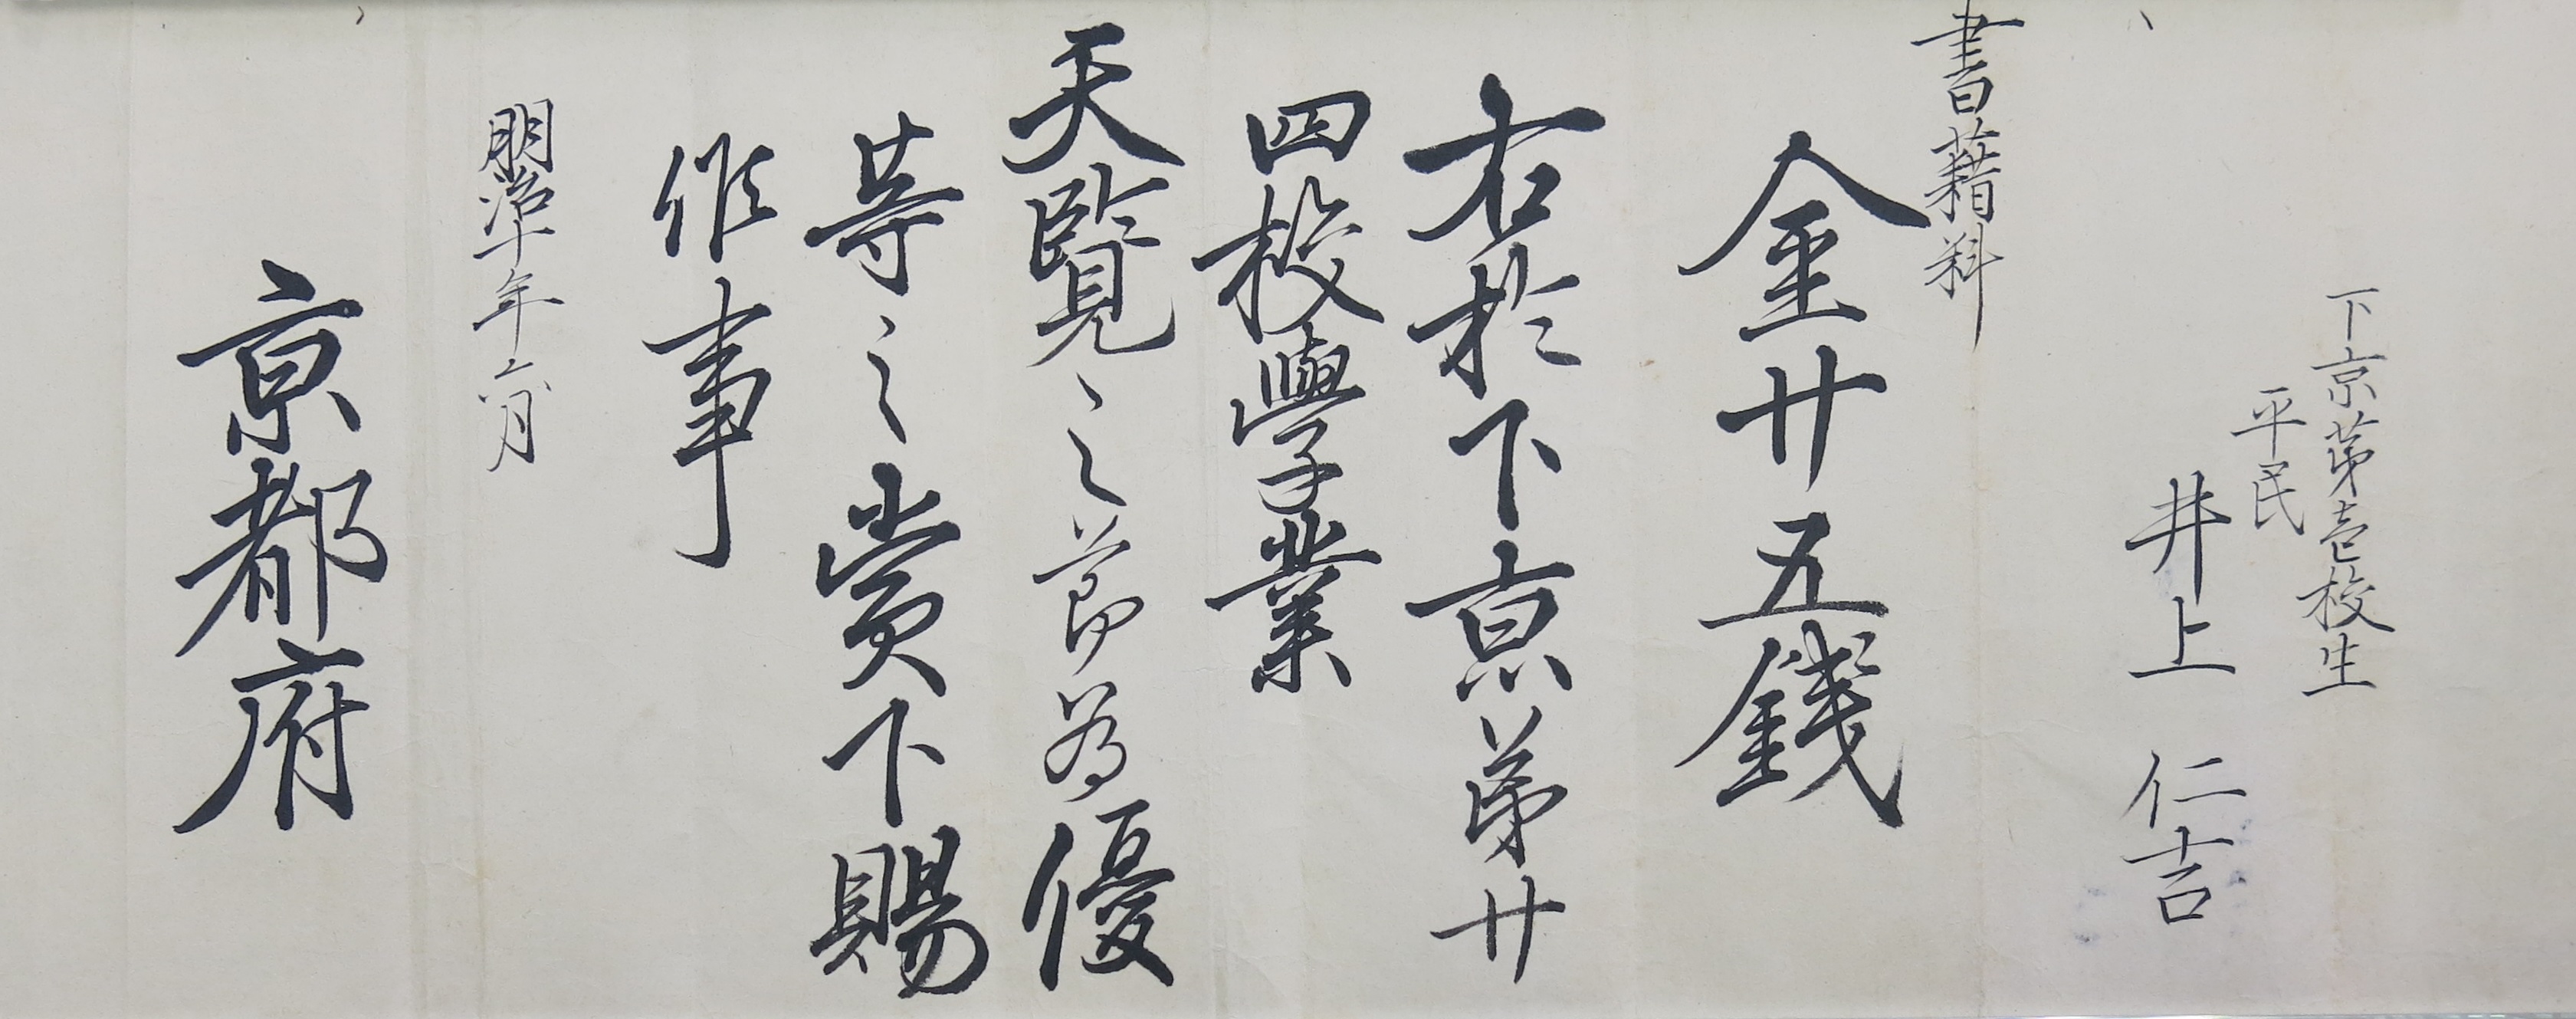 下京第壱校生
平民
井上仁吉
書籍料
金廿五銭
右於下京第廿
四校學業
天覧之節為優
等之賞下賜
候事
明治十年六月
京都府